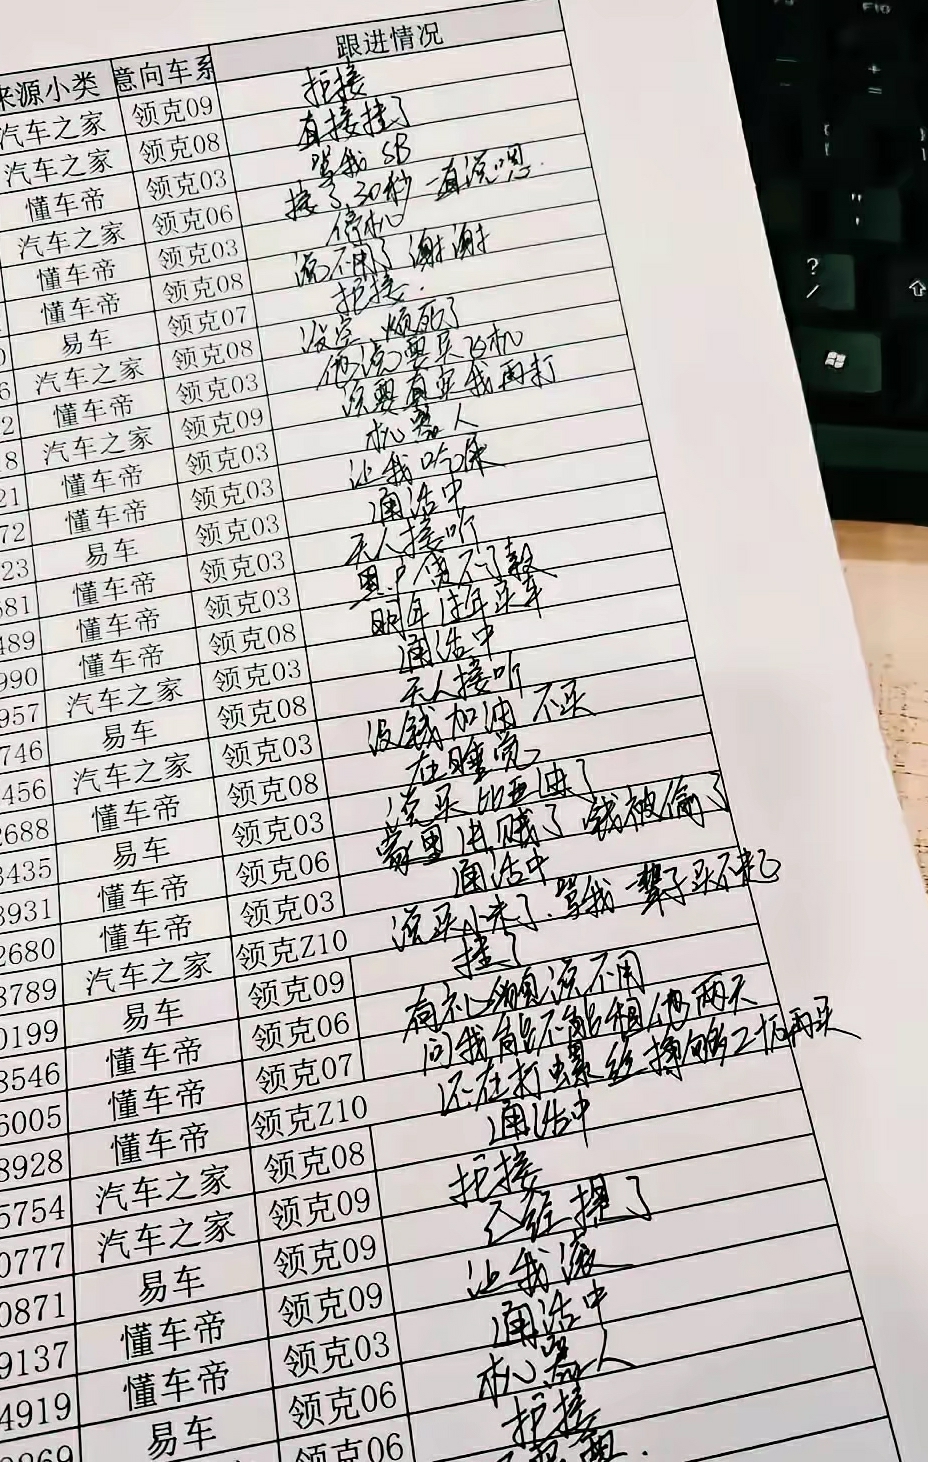 来源小类 意向车系 跟进情况
汽车之家 领克09 拒接
汽车之家 领克08 直接挂了
懂车帝 领克03 骂我 SB
汽车之家 领克06 接了30秒 一直说嗯.
懂车帝 领克03 停机
懂车帝 领克08 说不用了 谢谢
0 易车 领克07 拒接.
6 汽车之家 领克08 没空 烦死了
2 懂车帝 领克03 他说要买飞机
18 汽车之家 领克09 说要真买我再打
21 懂车帝 领克03 机器人
72 懂车帝 领克03 让我吃屎
23 易车 领克03 通话中
581 懂车帝 领克03 无人接听
489 懂车帝 领克03
990 懂车帝 领克08 明年过年买车
957 汽车之家 领克03 通话中
746 易车 领克08 无人接听
456 汽车之家 领克03 没钱加油 不买
2688 懂车帝 领克08 在睡觉
3435 易车 领克03 说买比亚迪了
3931 懂车帝 领克06 家里进贼了 钱被偷了
2680 懂车帝 领克03 通话中
8789 汽车之家 领克Z10 说买小米了.骂我一辈子买不起
0199 易车 领克09 挂了
8546 懂车帝 领克06 有礼貌 说不用
6005 懂车帝 领克07 问我能不能租他两天
8928 懂车帝 领克Z10 还在打螺丝 攒够工资再买
5754 汽车之家 领克08 通话中
0777 汽车之家 领克09 拒接
0871 易车 领克09 已经提了
9137 懂车帝 领克09 让我滚
4919 懂车帝 领克03 通话中
易车 领克06 机器人
领克06 拒接